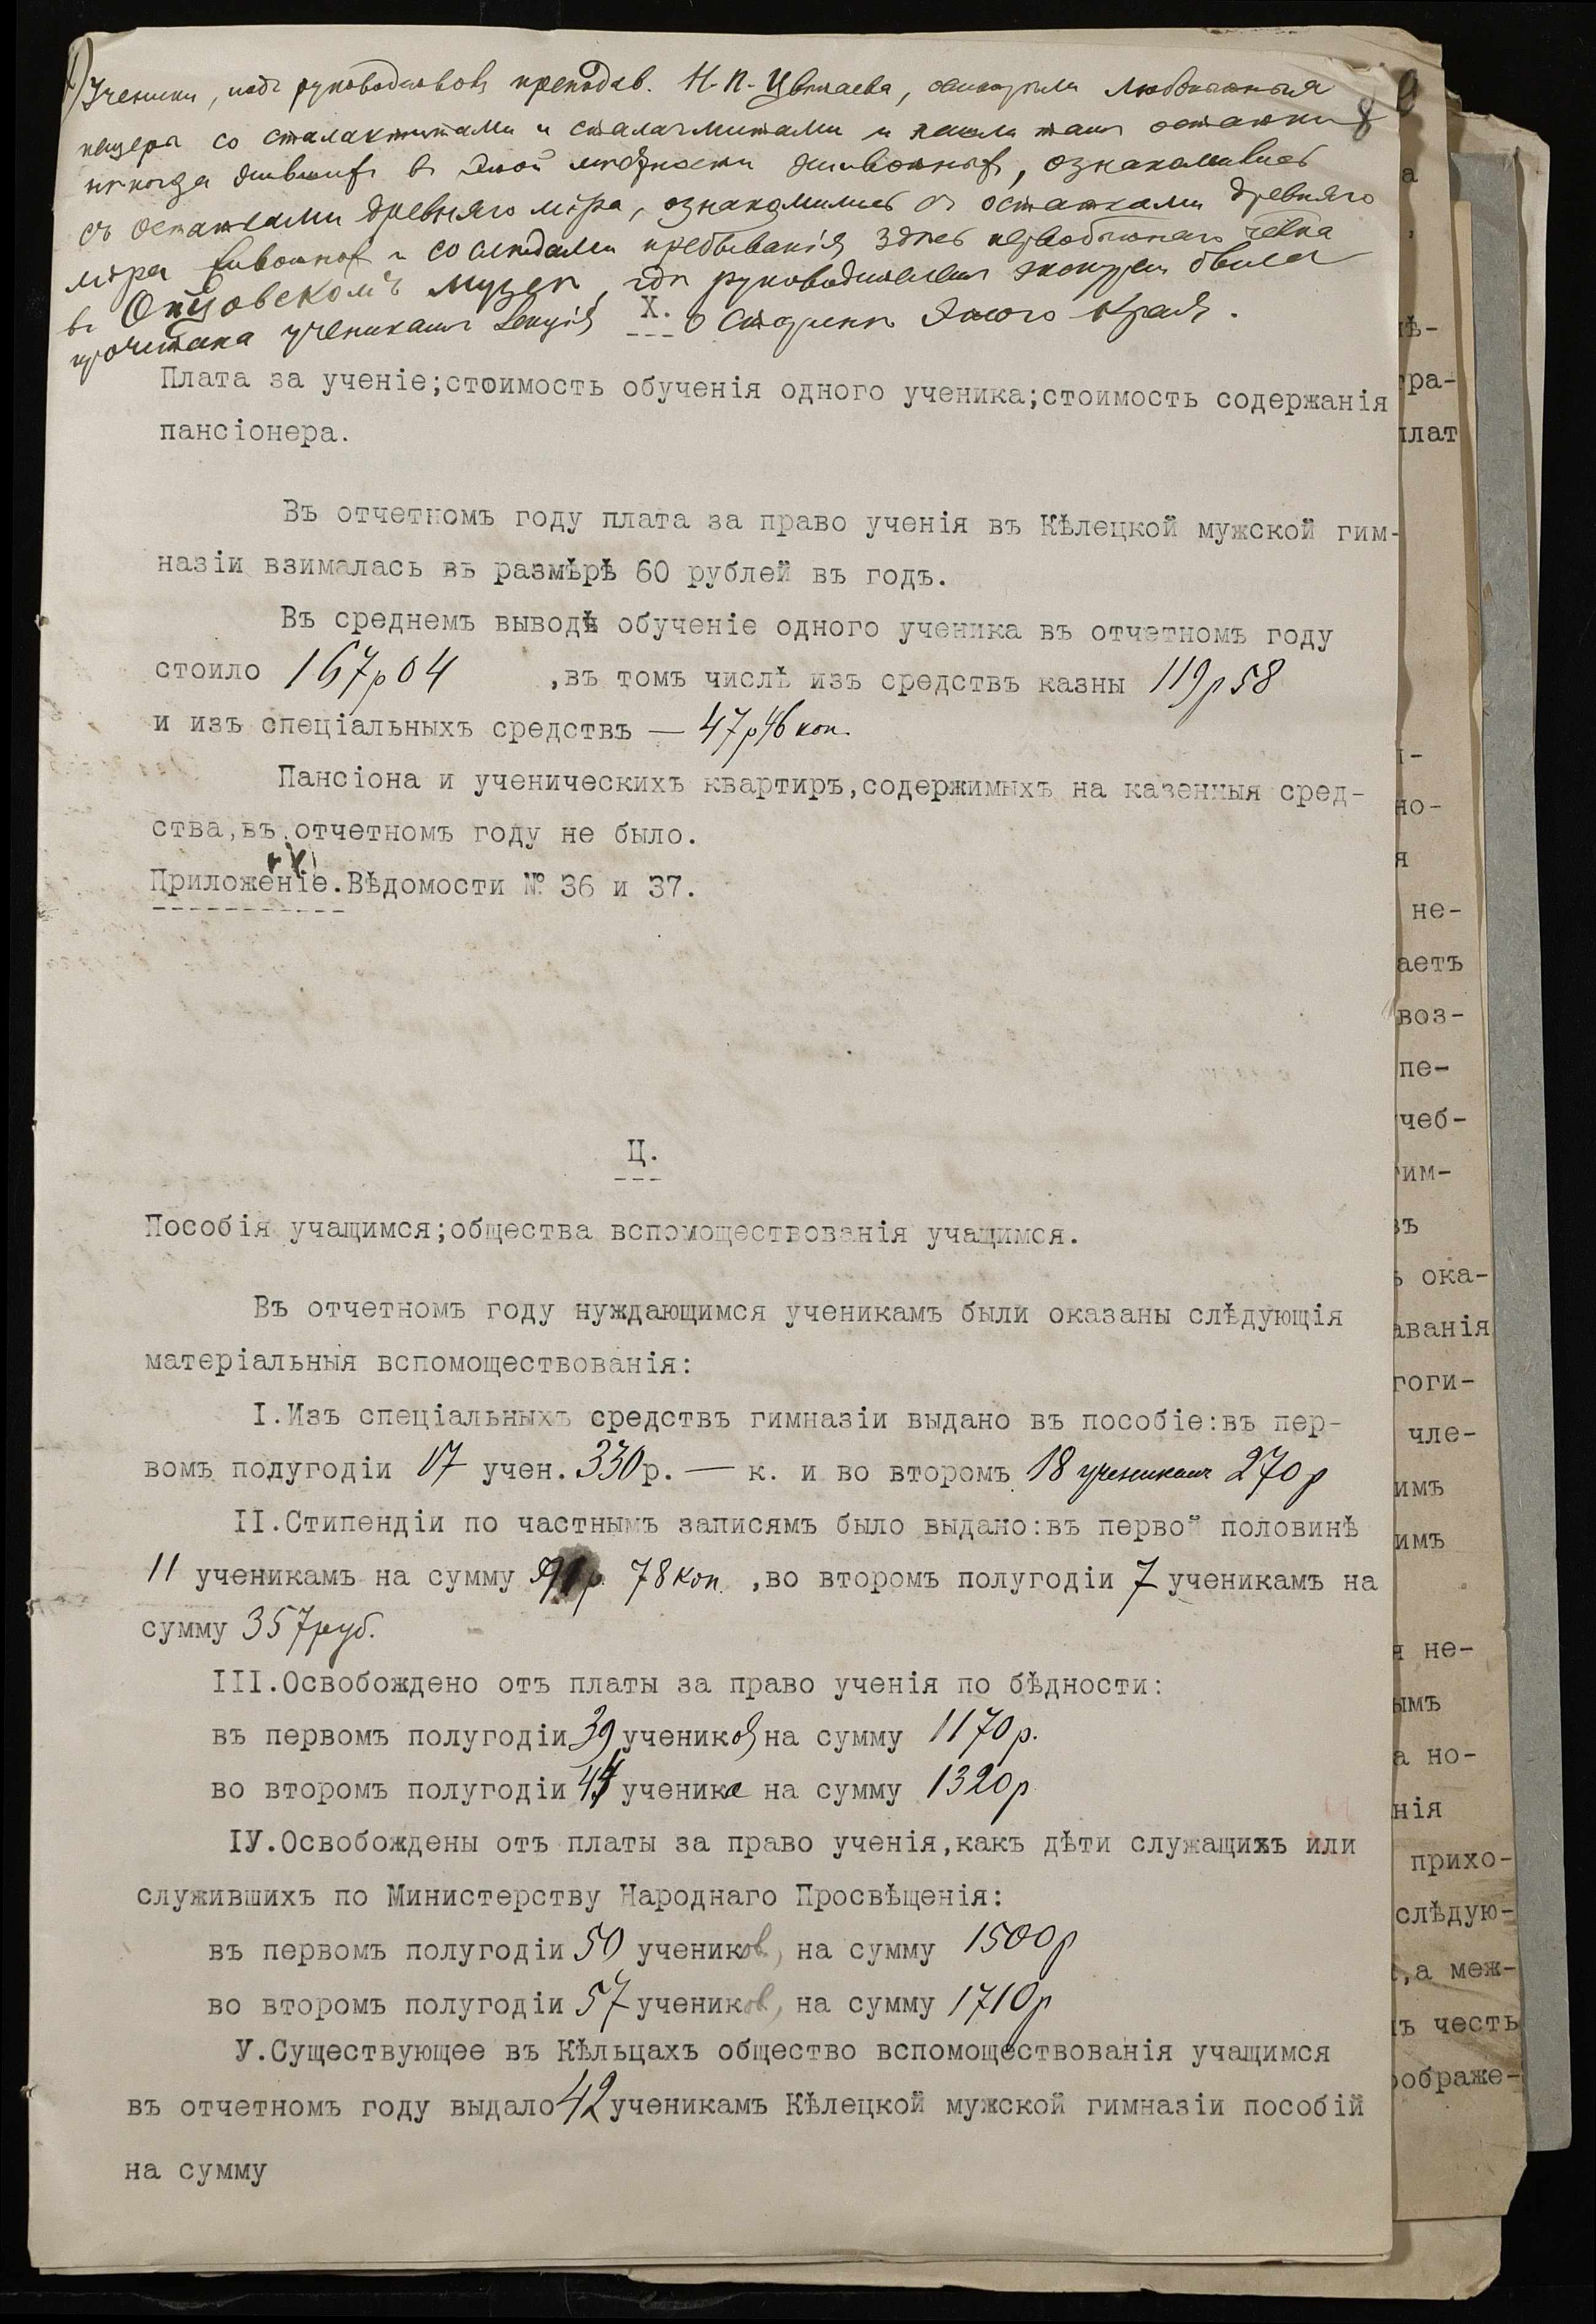 Ученики, подъ руководствомъ преподав. Н. П. Цвѣтаева, осмотрѣли любопытныя
пещеры со сталактитами и сталагмитами и нашли тамъ останки
нѣкогда жившихъ въ этой мѣстности животныхъ, ознакомились
съ останками древняго міра, ознакомились съ остатками древняго
міра животных и со слѣдами пребыванія здѣсь первобытнаго
въ Ойцовскомъ музеѣ, гдѣ руководителемъ экскурсіи была
прочитана ученикамъ лекція о старинѣ этого края.
8
X.
Плата за ученіе;стоимость обученія одного ученика;стоимость содержанія
пансіонера.
Въ отчетномъ году плата за право ученія въ Кѣлецкой мужской гим-
назіи взималась въ размѣрѣ 60 рублей въ годъ.
Въ среднемъ выводѣ обученіе одного ученика въ отчетномъ году
стоило 167р04 ,въ томъ числѣ изъ средствъ казны 119р58
и изъ спеціальныхъ средствъ — 47р46 коп.
Пансіона и ученическихъ квартиръ,содержимыхъ на казенныя сред-
ства,въ отчетномъ году не было.
Приложеніе.Вѣдомости № 36 и 37.
Ц.
Пособія учащимся;общества вспомоществованія учащимся.
Въ отчетномъ году нуждающимся ученикамъ были оказаны слѣдующія
матеріальныя вспомоществованія:
I.Изъ спеціальныхъ средствъ гимназіи выдано въ пособіе:въ пер-
вомъ полугодіи 17 учен. 330р. — к. и во второмъ 18 ученикамъ 270р
II.Стипендіи по частнымъ записямъ было выдано:въ первой половинѣ
11 ученикамъ на сумму р. 78 коп. ,во второмъ полугодіи 7 ученикамъ на
сумму 357руб.
III.Освобождено отъ платы за право ученія по бѣдности:
въ первомъ полугодіи 39 учениковъ на сумму 1170р.
во второмъ полугодіи 44 ученика на сумму 1320р
IУ.Освобождены отъ платы за право ученія,какъ дѣти служащихъ или
служившихъ по Министерству Народнаго Просвѣщенія:
въ первомъ полугодіи 50 учеников, на сумму 1500р
во второмъ полугодіи 57 учеников, на сумму 1710р
У.Существующее въ Кѣльцахъ общество вспомоществованія учащимся
въ отчетномъ году выдало 42 ученикамъ Кѣлецкой мужской гимназіи пособій
на сумму